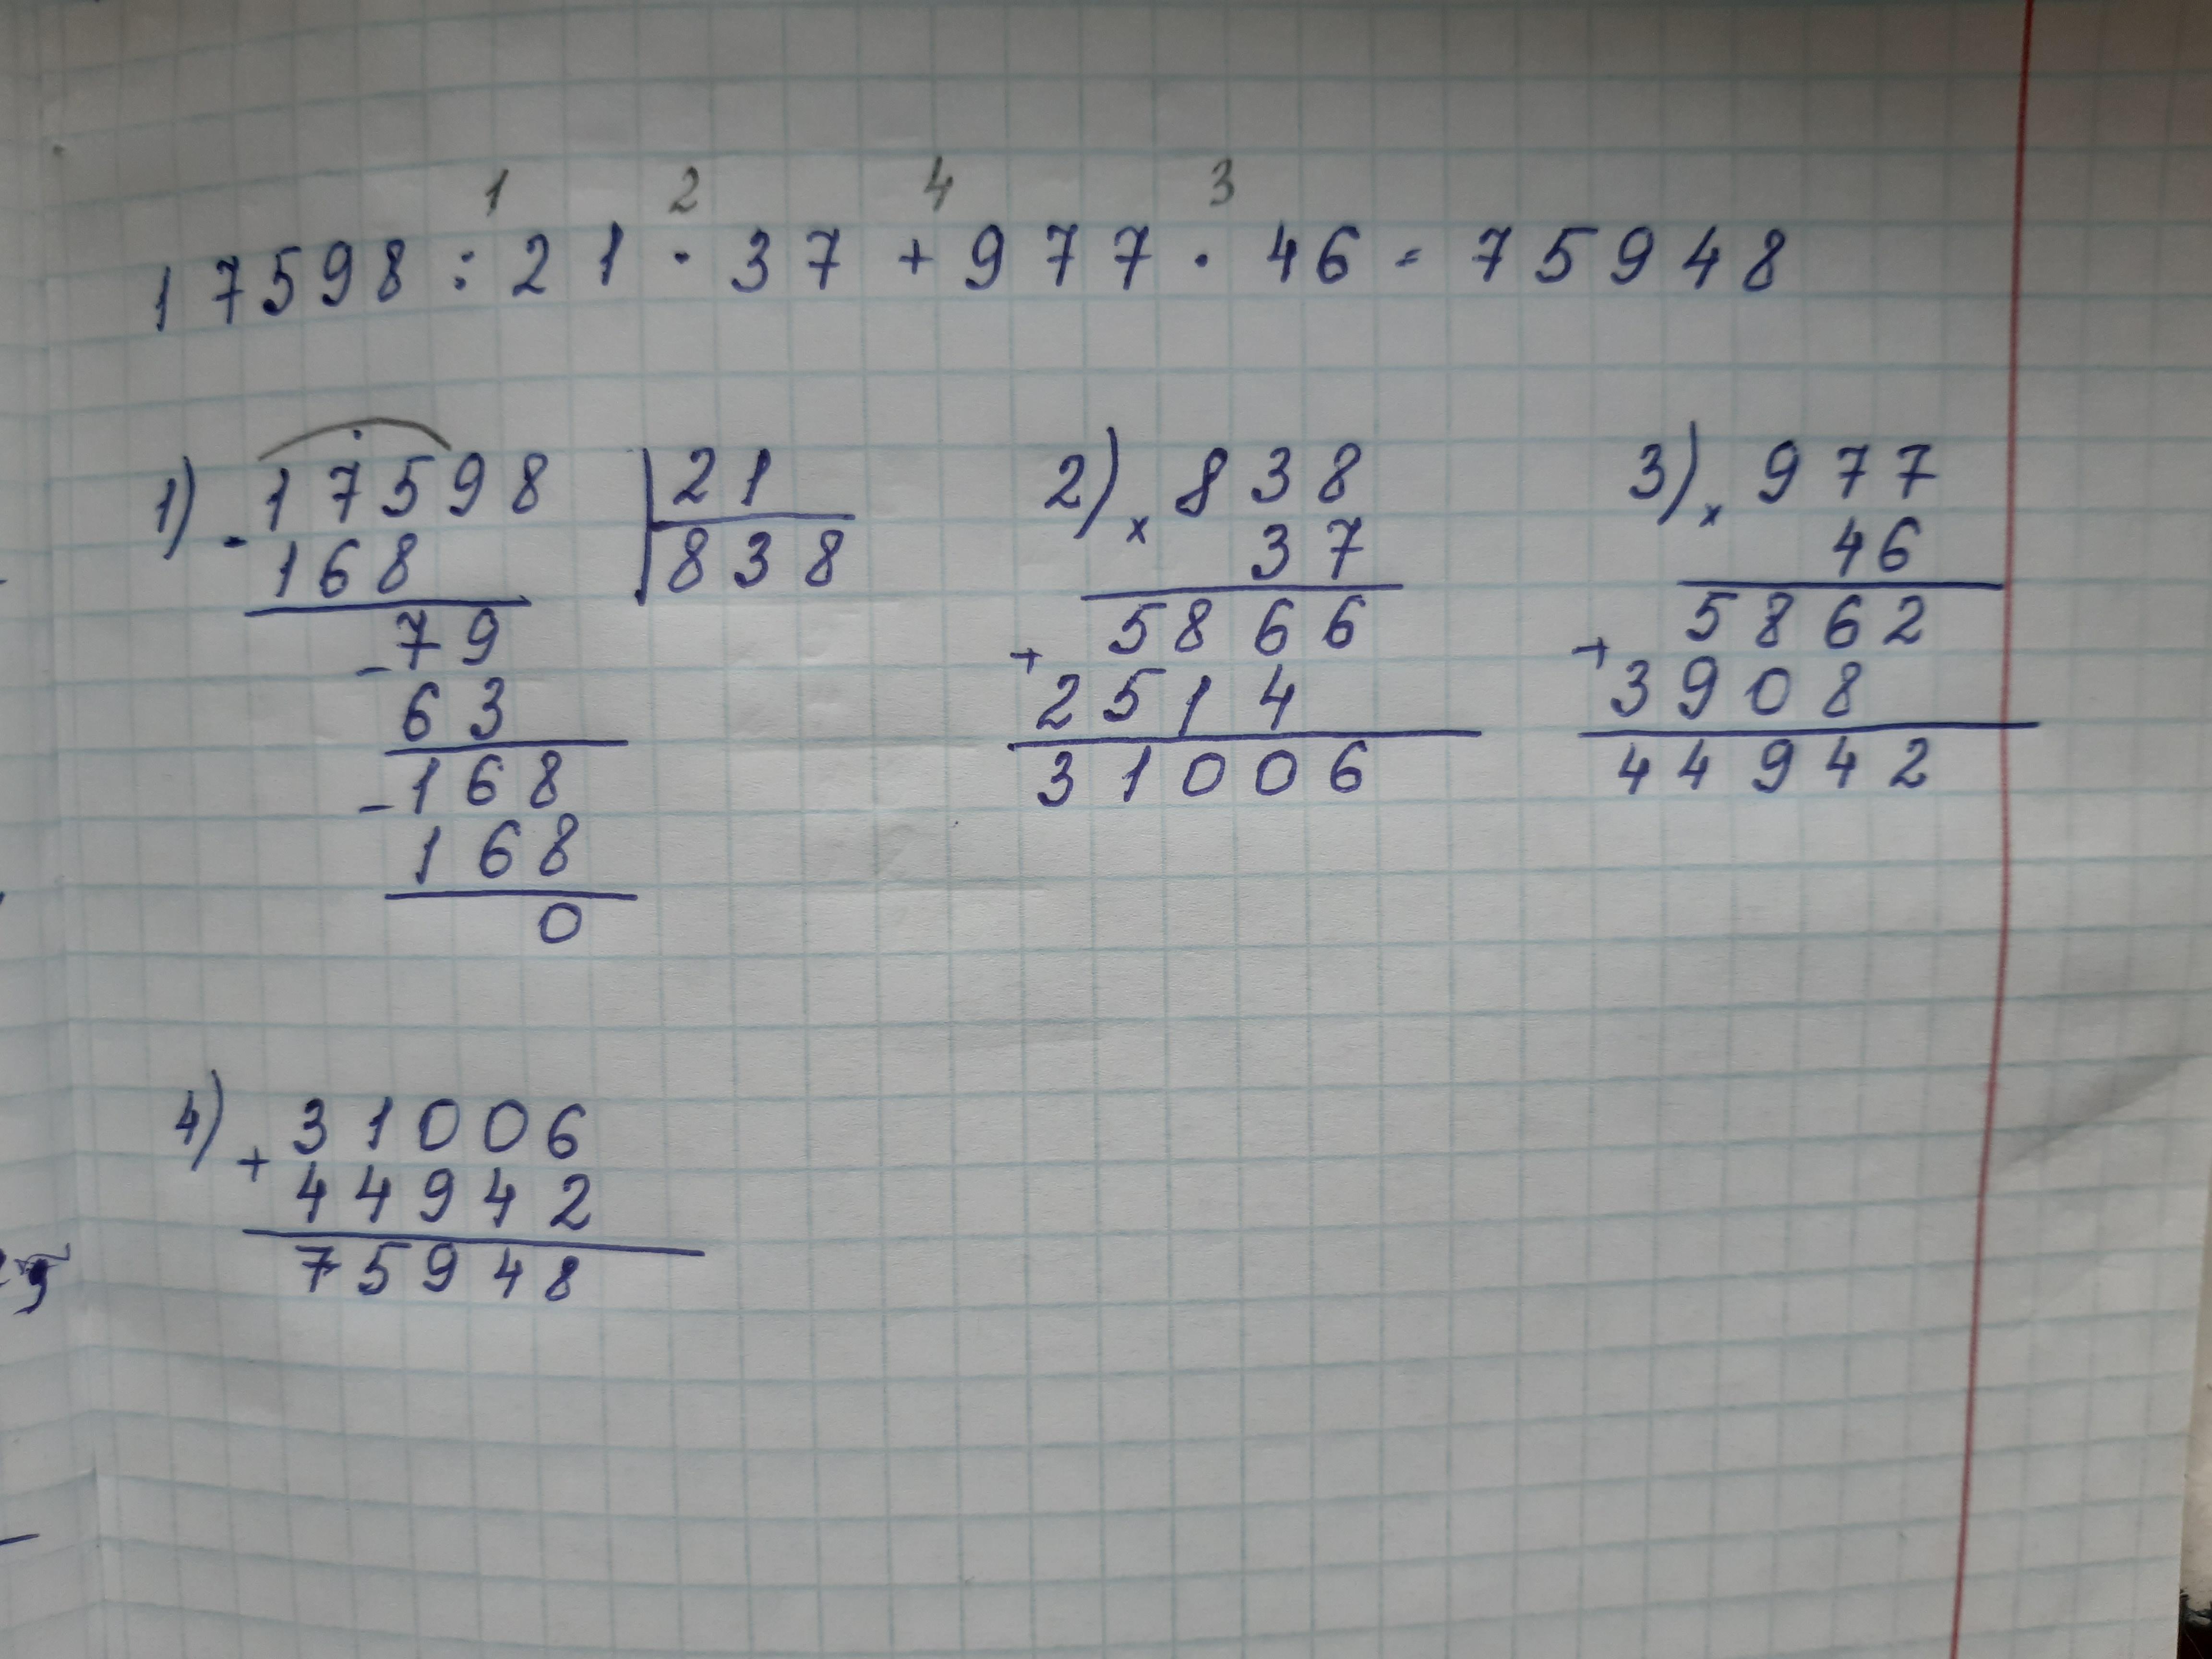 1 2 4 3
17598 : 21 · 37 + 977 · 46 = 75948
1) - 17598 | 21
168 838
- 79
63
- 168
168
0
2) x 838
37
5866
+ 2514
31006
3) x 977
46
5862
+ 3908
44942
4) + 31006
44942
75948